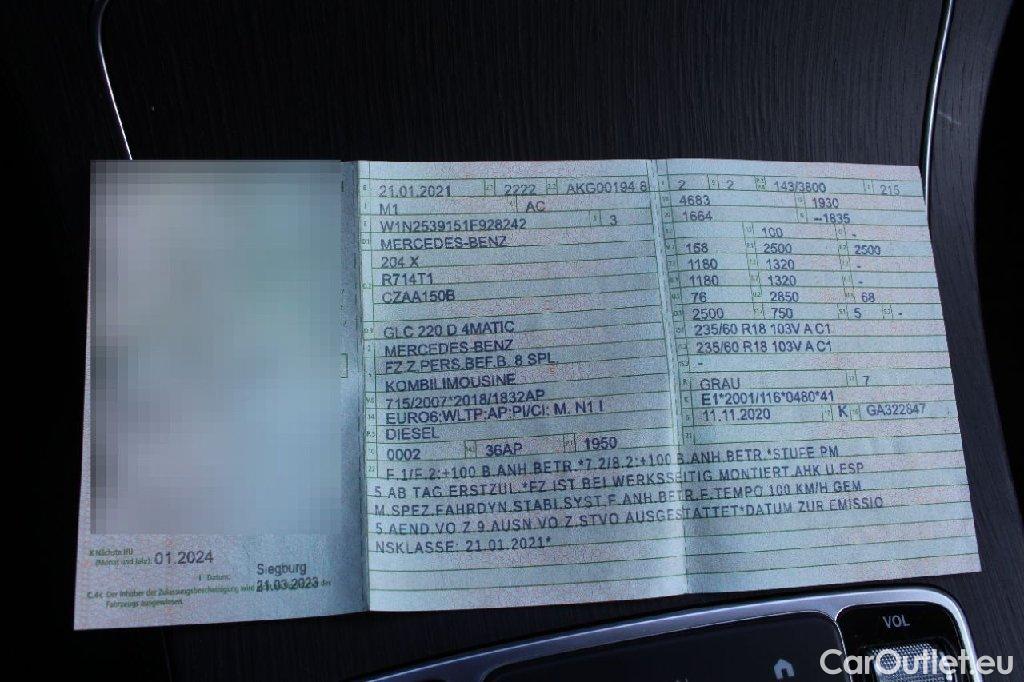 21.01.2021 2222 AKG00194 8
M1 AC
W1N2539151F928242 3
MERCEDES-BENZ
204 X
R714T1
CZAA150B
GLC 220 D 4MATIC
MERCEDES-BENZ
FZ.Z.PERS.BEF.B. 8 SPL
KOMBILIMOUSINE
715/2007*2018/1832AP
EURO6;WLTP;AP;PI/CI; M, N1 I
DIESEL
0002 36AP 1950
2 2 143/3800 215
4683 1930
1664 --1835
100 -
158 2500 2500
1180 1320 -
1180 1320 -
76 2850 68
2500 750 5 -
235/60 R18 103V A C1
235/60 R18 103V A C1
-
GRAU 7
E1*2001/116*0480*41
11.11.2020 K GA322847
F.1/F.2:+100 B.ANH.BETR.*7.2/8.2:+100 B.ANH.BETR.*STUFE PM
5 AB TAG ERSTZUL.*FZ IST BEI WERKSSEITIG MONTIERT.AHK U.ESP
M.SPEZ.FAHRDYN.STABI.SYST.F.ANH.BETR.F.TEMPO 100 KM/H GEM
5.AEND.VO.Z.9.AUSN.VO.Z.STVO AUSGESTATTET*DATUM ZUR EMISSIO
NSKLASSE: 21.01.2021*
X Nächste HU
(Monat und Jahr): 01.2024
I Datum: Siegburg
21.03.2023
C.4c Der Inhaber der Zulassungsbescheinigung wird nicht als Eigentümer des
Fahrzeugs ausgewiesen.
VOL
CarOutlet.eu